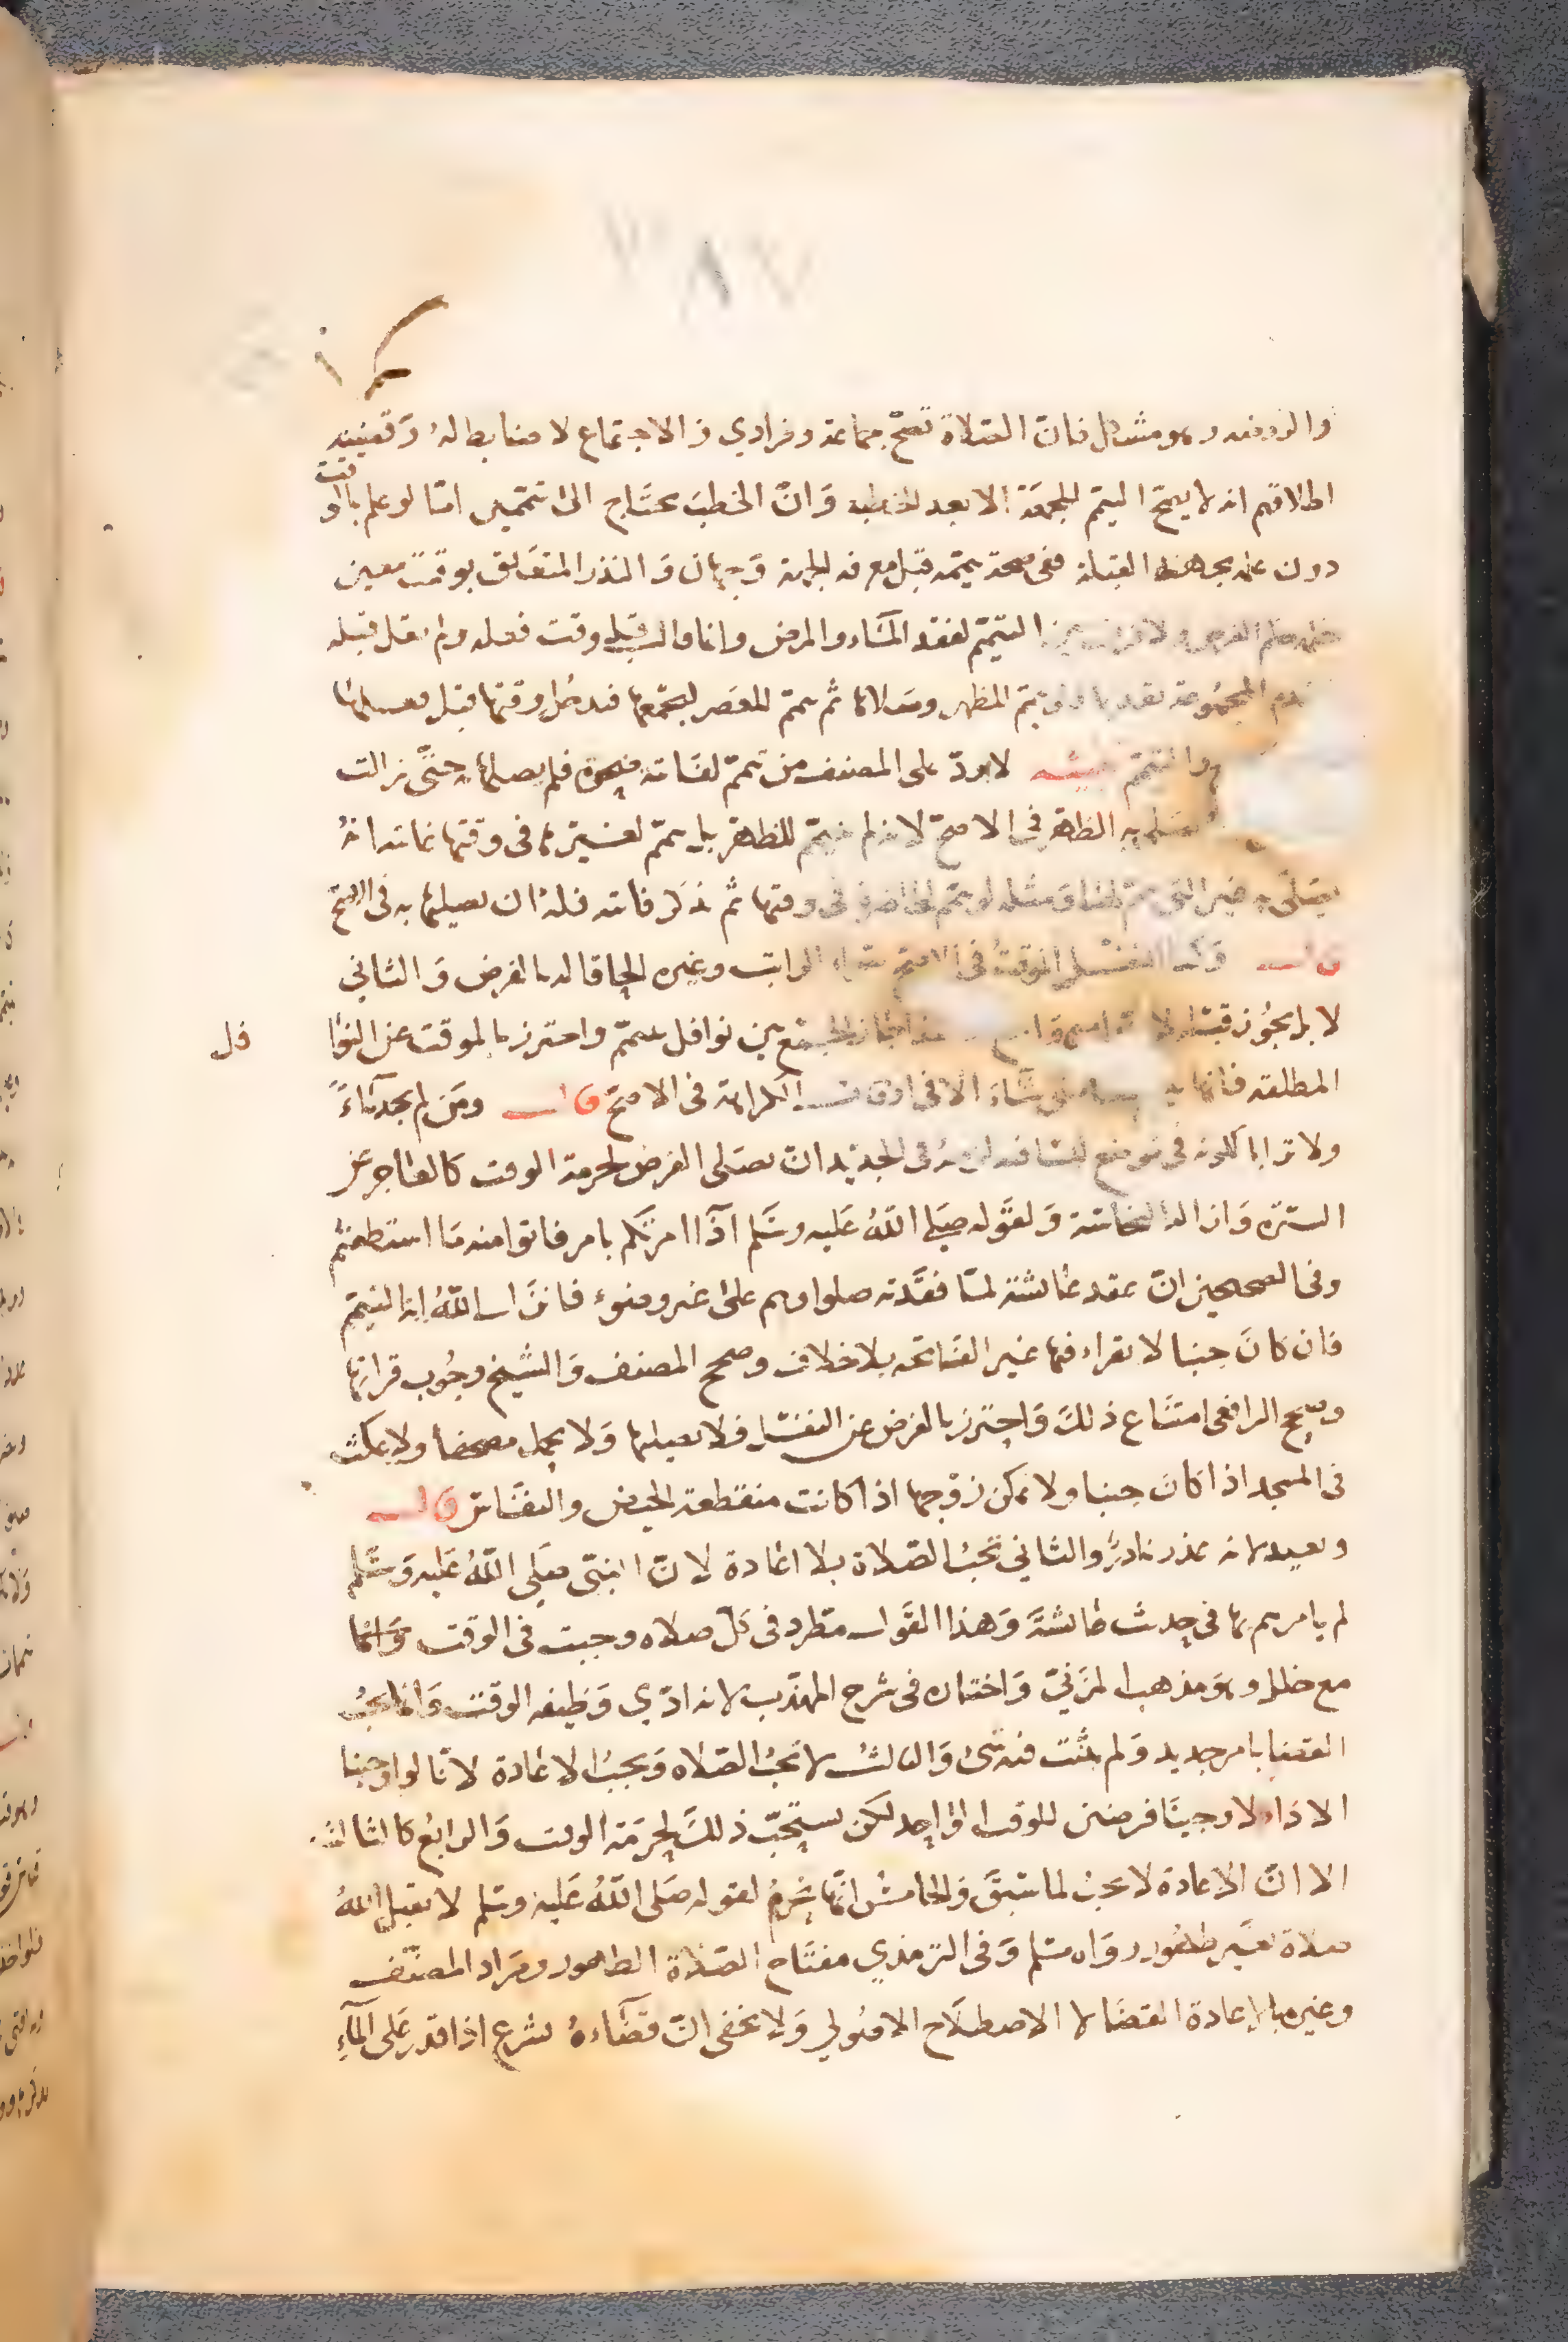 والروضه وهو مشكل فان الصلاة تصح جماعة وفرادي والاجتماع لا ضابط له وقضية
اطلاقهم انه لا يصح التيمم للجمعة الا بعد الخطبة وان الخطيب يحتاج الى تيممين اما لو علم بالوقت
دون علمه بجهة القبلة ففي صحة تيممه قبل معرفة الجهة وجهان والنذر المتعلق بوقت معين
التيمم لفقد الماء والمرض وانما وقت فعله ولم يقل قبله
المجموعة تيمم للظهر وصلاها ثم تيمم للعصر ليجمعها فدخل وقتها قبل فعلها
والتيمم تنبيه لا يرد على المصنف من تيمم لفائتة ضحوة فلم يصلها حتى زالت
الظهر في الاصح لانه لم يتيمم للظهر بل تيمم لغيرها في وقتها غايته انه
يصلي به غير التي تيمم لها ومثله لو تيمم للحاضرة في وقتها ثم ذكر فائتة فله ان يصليها به في الاصح
قال وكذا النفل الموقت في الاصح الراتب وغيره الحاقا له بالفرض والثاني
لا بل يجوز قبله الجمع بين نوافل بتيمم واحترز بالموقت عن النوا
فل
المطلقة شاء الا في اوقات الكراهة في الاصح قال ومن لم يجد ماءً
ولا ترابا لكونه في موضع لزمه في الجديد ان يصلى الفرض لحرمة الوقت كالعاجز عن
السترة وازالة النجاسة ولقوله صلى الله عليه وسلم اذا امرتكم بامر فاتوا منه ما استطعتم
وفي الصحيحين ان عقد عائشة لما فقدته صلوا وهم على غير وضوء فانزل الله اية التيمم
فان كان جنبا لا يقراء فيها غير الفاتحه بلا خلاف وصحح المصنف والشيخ وجوب قراتها
وصحح الرافعي امتناع ذلك واحترز بالفرض عن النفل فلا يصليها ولا يحمل مصحفا ولا يمكث
في المسجد اذا كان جنبا ولا تمكن زوجها اذا كانت منقطعة الحيض والنفاس قال
ويعيد لانه عذر نادر والثاني تجب الصلاة بلا اعادة لان النبي صلى الله عليه وسلم
لم يامرهم بها في حديث عائشة وهذا القول مطرد في كل صلاه وجبت في الوقت وانما
مع خلل وهو مذهب المزني واختاره في شرح المهذب لانه ادي وظيفه الوقت وانما يجب
القضا بامر جديد ولم يثبت فيه شئ والثالث لا تجب الصلاه وتجب الاعادة لانا لو اوجبنا
الاداء لاوجبنا فرضين للوقت الواحد لكن يستحب ذلك لحرمة الوقت والرابع كالثالث
الا ان الاعادة لا تجب لما سبق والخامس انها تحرم لقوله صلى الله عليه وسلم لا يقبل الله
صلاة بغير طهور رواه مسلم وفي الترمذي مفتاح الصلاة الطهور ومراد المصنف
وغيره بالاعادة القضا لا الاصطلاح الاصولي ولا يخفى ان قضاءه يشرع اذا قدر على الماء